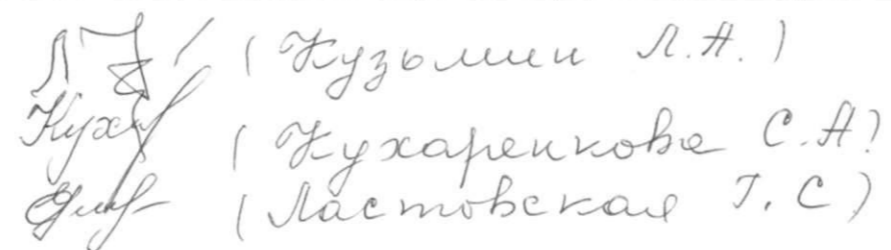 (Кузьмин Л.А.)
(Кухаренкова С.А)
(Ластовская Г.С)